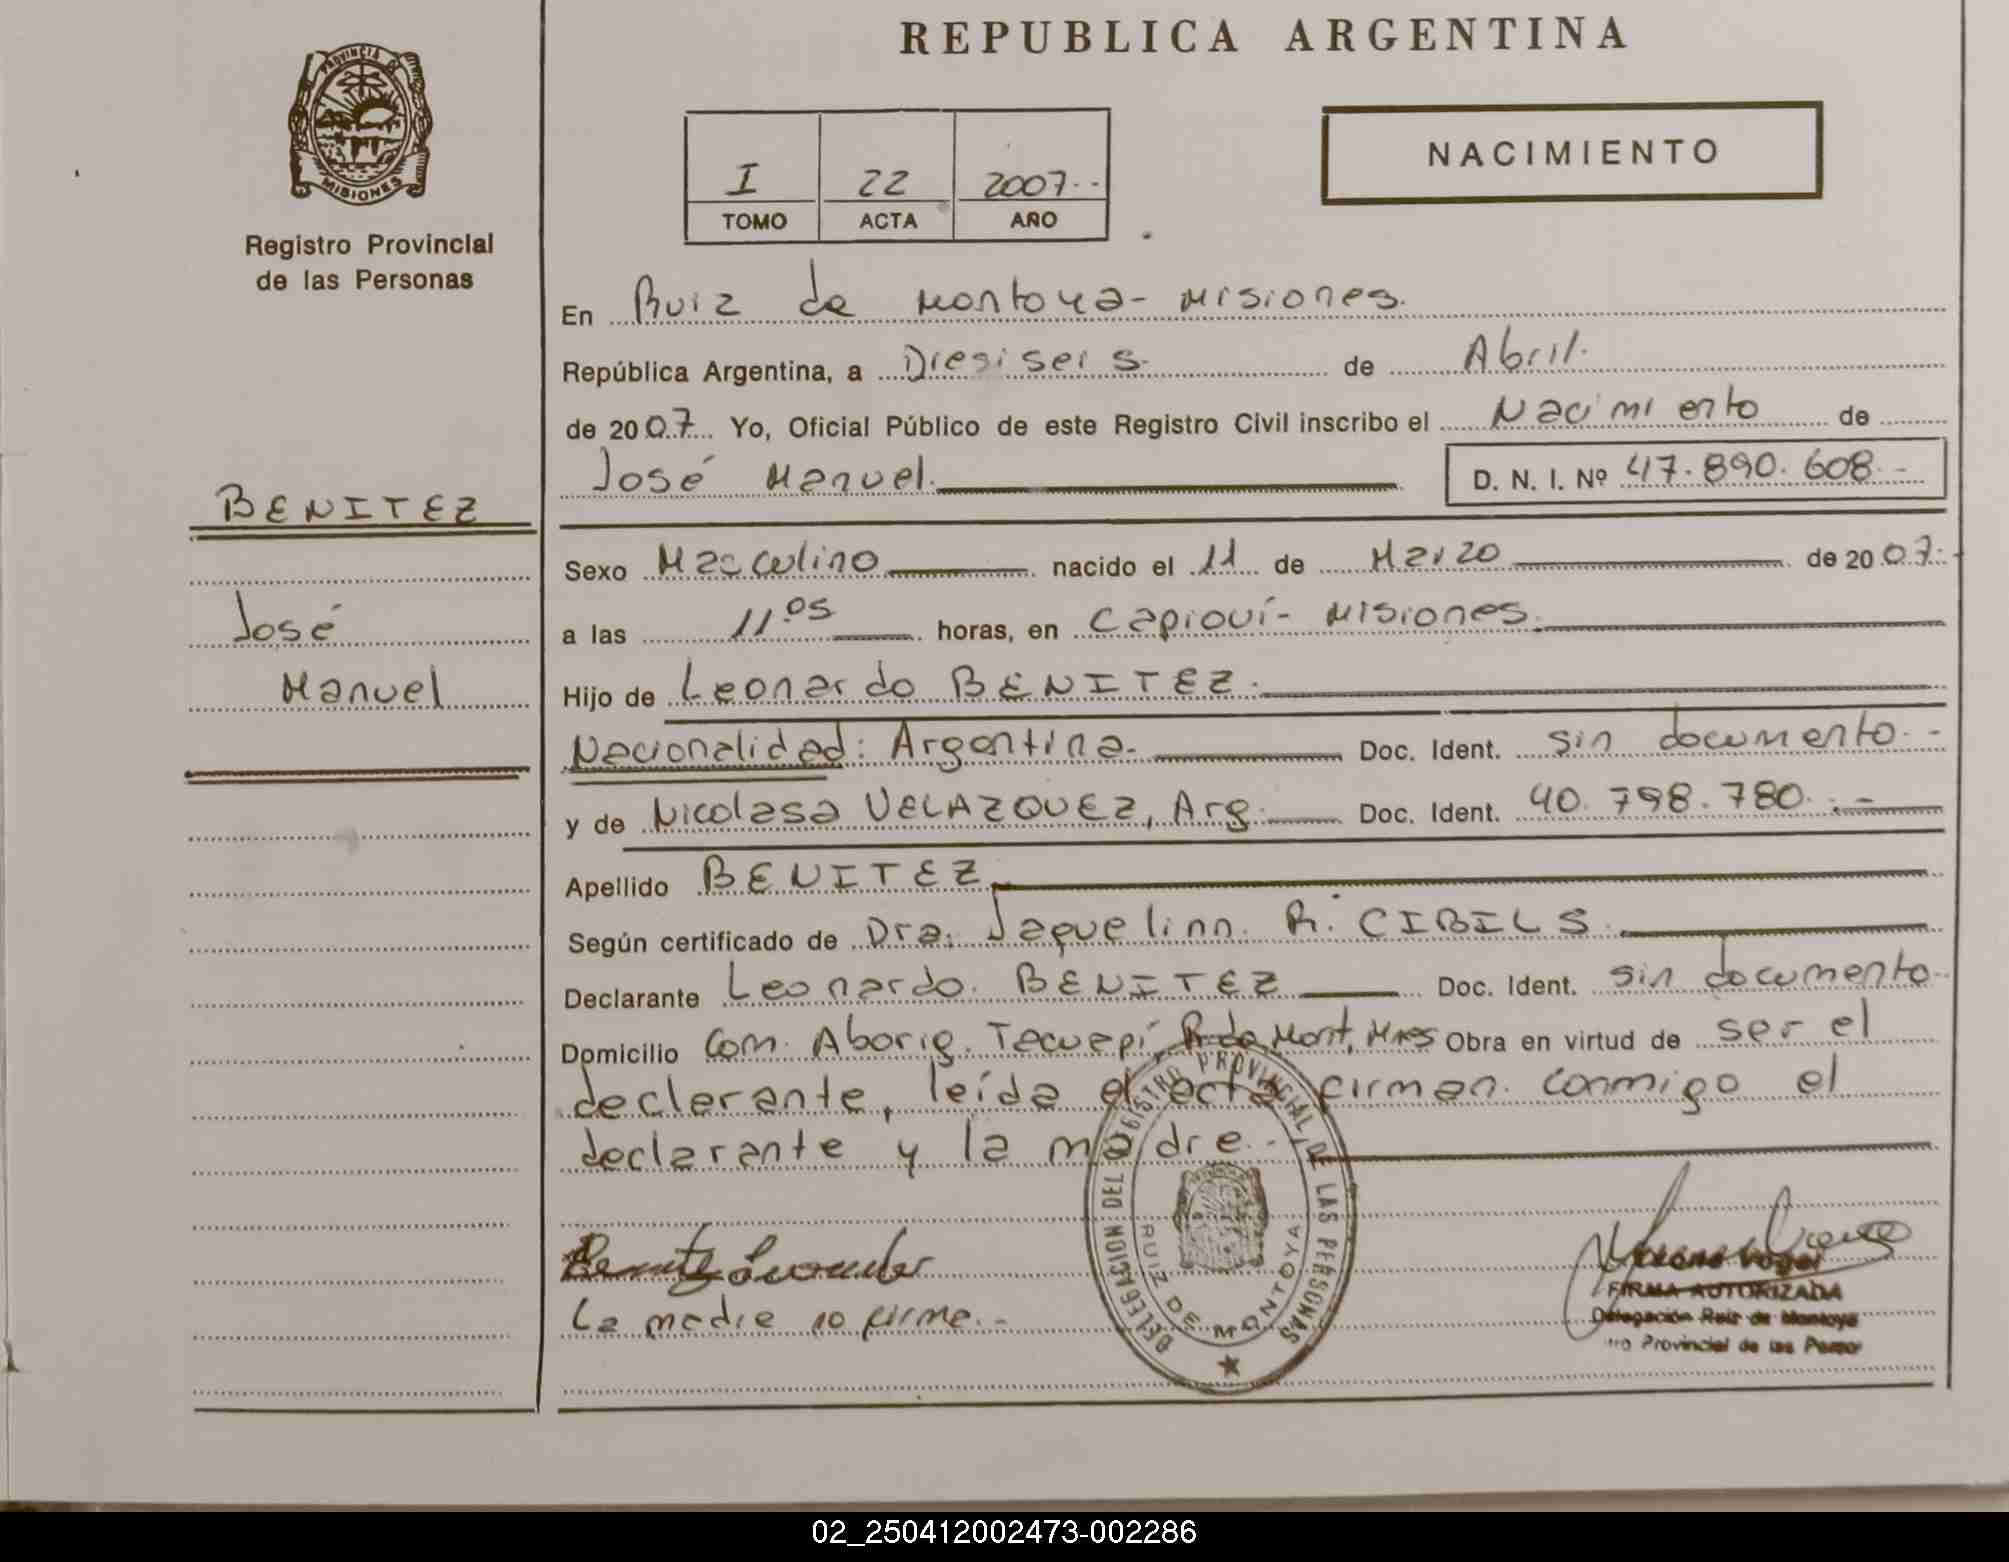 REPUBLICA ARGENTINA
PROVINCIA DE
MISIONES
Registro Provincial
de las Personas
I 22 2007.-
TOMO ACTA AÑO
NACIMIENTO
En Ruiz de Montoya - Misiones.
República Argentina, a Diesiseis. de Abril.
de 2007. Yo, Oficial Público de este Registro Civil inscribo el Nacimiento de
José Manuel. D. N. I. Nº 47.890.608.-
BENITEZ
José
Manuel
Sexo Masculino nacido el 11 de Marzo de 2007.-
a las 11.05 horas, en Capioví - Misiones.
Hijo de Leonardo BENITEZ.
Nacionalidad: Argentina. Doc. Ident. sin documento.-
y de Nicolasa VELAZQUEZ, Arg. Doc. Ident. 40.798.780.-
Apellido BENITEZ
Según certificado de Dra. Jaquelinn. R. CIBILS
Declarante Leonardo. BENITEZ Doc. Ident. sin documento.
Domicilio Com. Aborig. Tacuapí, R. de Mont, Mnes Obra en virtud de ser el
declarante, leída el acta firman conmigo el
declarante y la madre.-
DELEGACION DEL REGISTRO PROVINCIAL DE LAS PERSONAS
RUIZ DE MONTOYA
La madre no firma.-
FIRMA AUTORIZADA
Delegación Ruiz de Montoya
Provincial de las Person
02_250412002473-002286